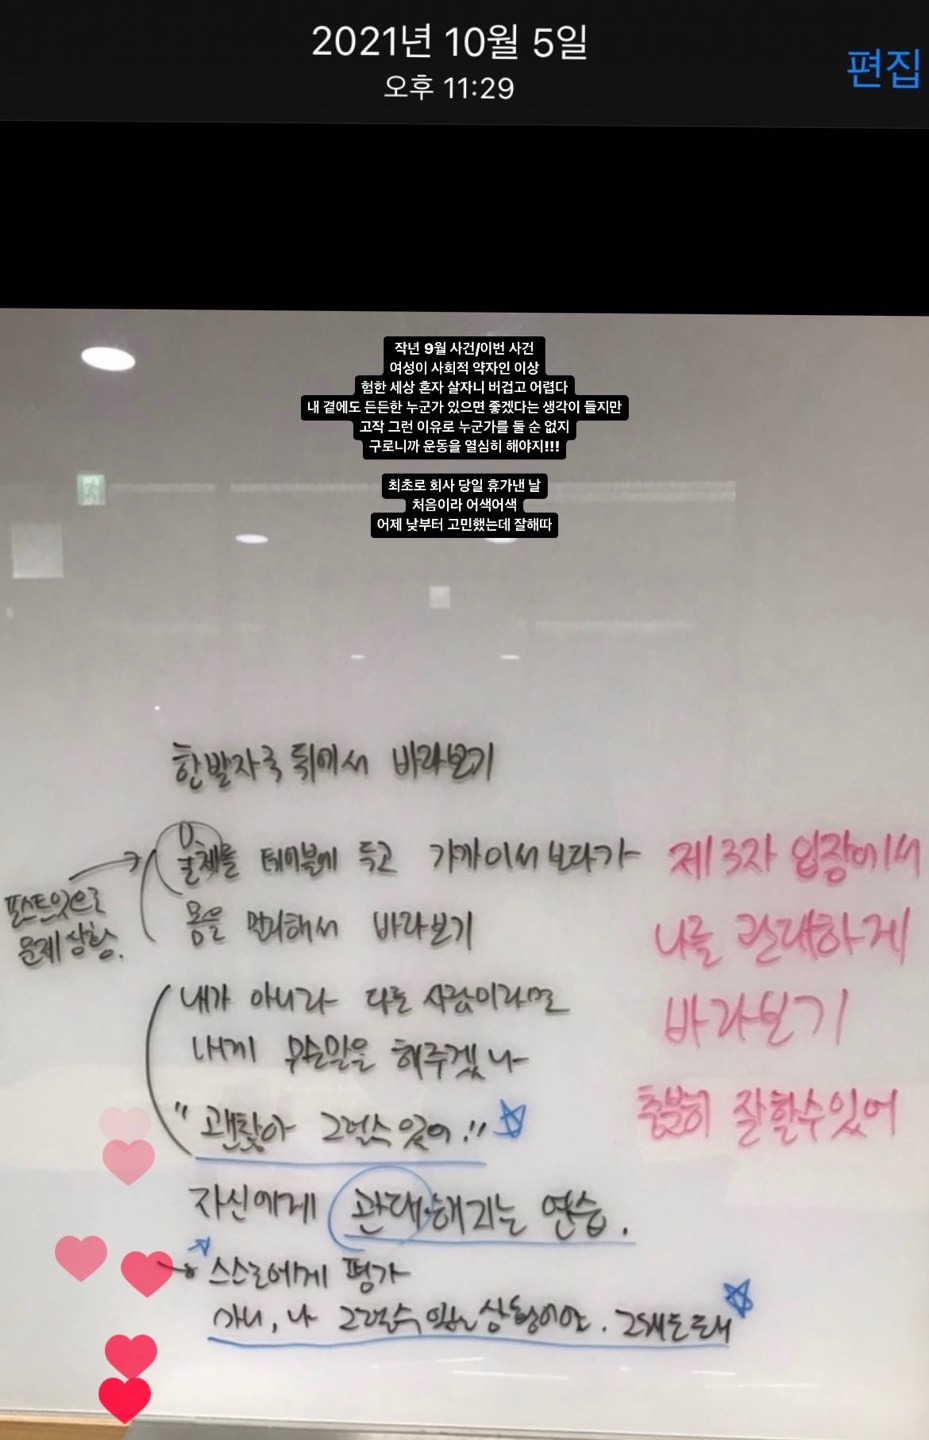 2021년 10월 5일
오후 11:29
편집
작년 9월 사건/이번 사건
여성이 사회적 약자인 이상
험한 세상 혼자 살자니 버겁고 어렵다
내 곁에도 든든한 누군가 있으면 좋겠다는 생각이 들지만
고작 그런 이유로 누군가를 둘 순 없지
구로니까 운동을 열심히 해야지!!!
최초로 회사 당일 휴가낸 날
처음이라 어색어색
어제 낮부터 고민했는데 잘해따
한발자국 뒤에서 바라보기
물체를 테이블에 두고 가까이서 보다가
몸을 멀리해서 바라보기
포스트잇으로
문제상황.
내가 아니라 다른 사람이라면
내게 무슨말을 해주겠나
"괜찮아 그럴수 있어!"
자신에게 관대해지는 연습.
스스로에게 평가
아니, 나 그럴수 있는 상황이야. 그래도 돼
제3자 입장에서
나를 관대하게
바라보기
충분히 잘할수있어